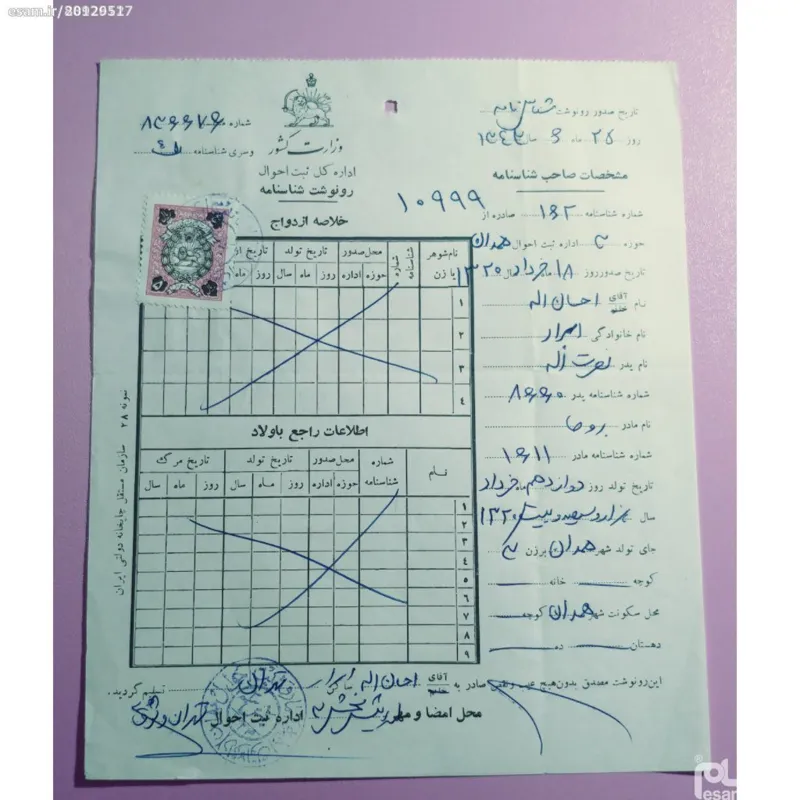 esam.ir/
تاریخ صدور رونوشت شناسنامه
روز ۲۵ ماه ۶ سال ۱۳۴۳
مشخصات صاحب شناسنامه
شماره شناسنامه ۱۶۲ صادره از
حوزه ۳ اداره ثبت احوال همدان
تاریخ صدور روز ۱۸ ماه خرداد سال ۱۳۲۰
نام آقای احسان اله
نام خانوادگی ابرار
نام پدر نصرت اله
شماره شناسنامه پدر ۸۶۶۰
نام مادر روحا
شماره شناسنامه مادر ۱۶۱۱
تاریخ تولد روز دوازدهم ماه خرداد
سال هزار و سیصد و بیست ۱۳۲۰
جای تولد شهر همدان برزن ۳
کوچه خانه
محل سکونت شهر همدان کوچه
دهستان ده
شماره ۸۳۶۶۷۶
وسری شناسنامه
وزارت کشور
اداره کل ثبت احوال
رونوشت شناسنامه
۱۰۹۹۹
خلاصه ازدواج
نام شوهر یا زن
شماره شناسنامه
محل صدور
تاریخ تولد
حوزه اداره
روز ماه سال
روز ماه
۱
۲
۳
۴
اطلاعات راجع باولاد
نام
شماره شناسنامه
محل صدور
تاریخ تولد
تاریخ مرگ
حوزه اداره
روز ماه سال
روز ماه سال
۱
۲
۳
۴
۵
۶
۷
۸
۹
نمونه ۲۸ سازمان مستقل چاپخانه دولتی ایران
این رونوشت مصدق بدون هیچ عیب و نقص صادر به آقای احسان اله ابرار ساکن تهران تسلیم گردید.
محل امضا و مهر بخش ۳ اداره ثبت احوال تهران
esam